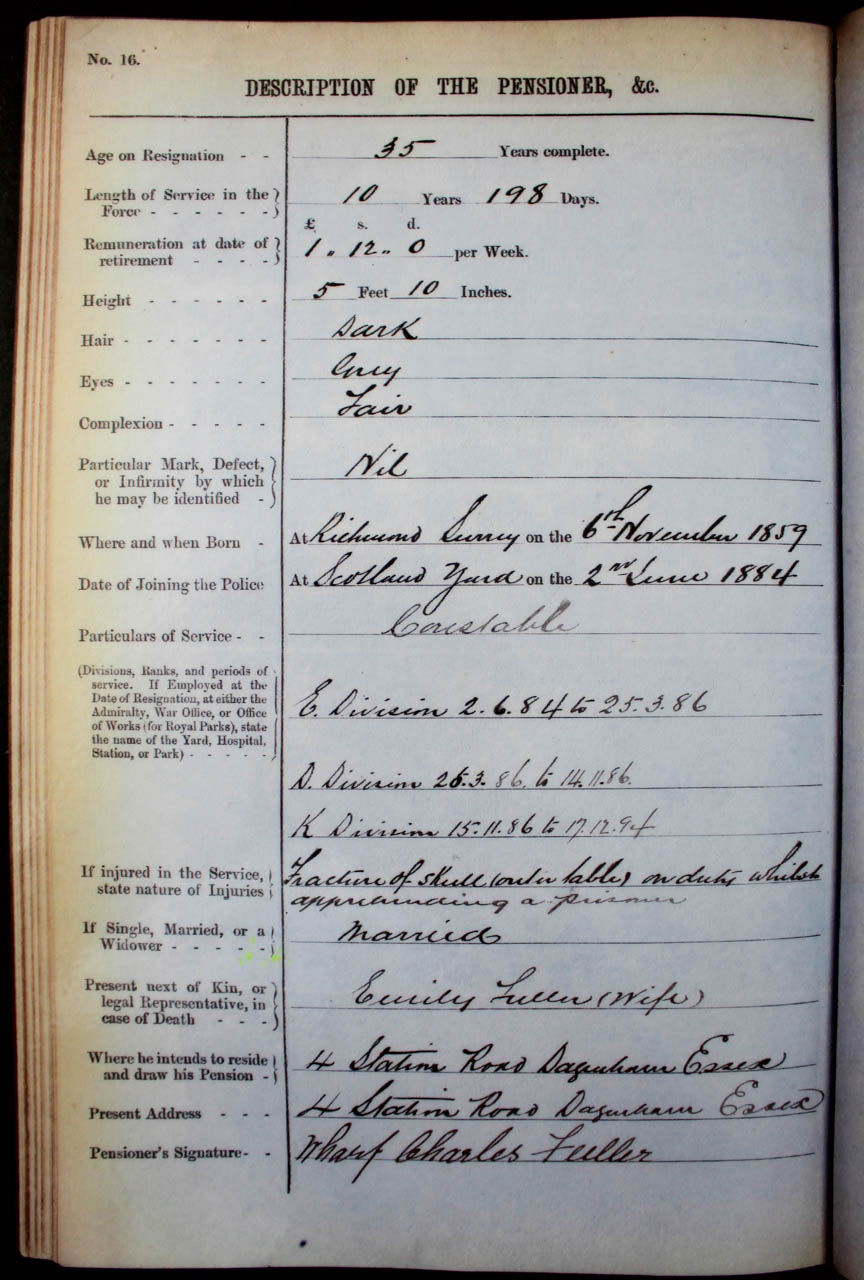 No. 16.
DESCRIPTION OF THE PENSIONER, &c.
Age on Resignation - - 35 Years complete.
Length of Service in the Force - - - - - - 10 Years 198 Days.
£ s. d.
Remuneration at date of retirement - - - - 1 " 12 " 0 per Week.
Height - - - - - - 5 Feet 10 Inches.
Hair - - - - - - - Dark
Eyes - - - - - - - Grey
Complexion - - - - - Fair
Particular Mark, Defect, or Infirmity by which he may be identified - Nil
Where and when Born - At Richmond Surrey on the 6th November 1859
Date of Joining the Police At Scotland Yard on the 2nd June 1884
Particulars of Service - - Constable
(Divisions, Ranks, and periods of
service. If Employed at the
Date of Resignation, at either the
Admiralty, War Office, or Office
of Works (for Royal Parks), state
the name of the Yard, Hospital,
Station, or Park) - - - - -
E. Division 2.6.84 to 25.3.86
D. Division 26.3.86. to 14.11.86.
K Division 15.11.86 to 17.12.94
If injured in the Service, state nature of Injuries Fracture of Skull (outer table) on duty whilst
apprehending a prisoner
If Single, Married, or a Widower - - - - - Married
Present next of Kin, or legal Representative, in case of Death - - - Emily Fuller (Wife)
Where he intends to reside and draw his Pension - 4 Station Road Dagenham Essex
Present Address - - - 4 Station Road Dagenham Essex
Pensioner's Signature - - Wharf Charles Fuller